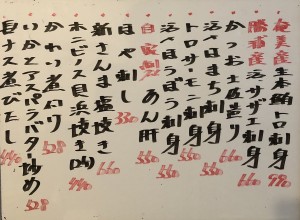 奄美産 生本鮪トロ刺身 990
勝浦産 活サザエ刺身 660
かつお土佐造り 660
活〆はまち刺身 550
トロサーモン刺身 550
活〆ほうぼう刺身 550
自家製 あん肝 550
ほや刺し 330
新さんま塩焼き 660
ホンビノス貝浜焼き 660
かれい煮付け 528
いかとアスパラバター炒め 528
白ナス煮びたし 440